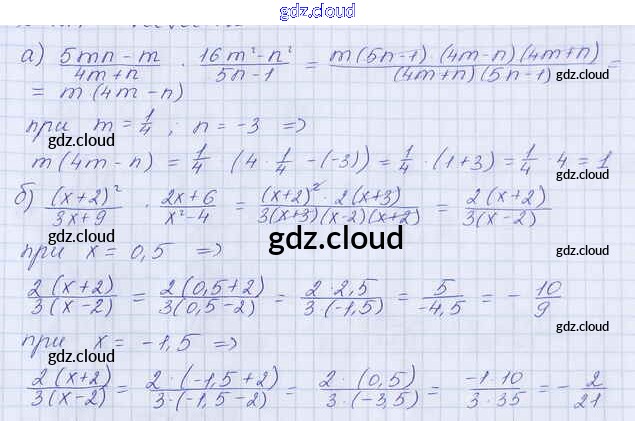 gdz.cloud
а) (5mn - m)/(4m + n) · (16m² - n²)/(5n - 1) = (m(5n - 1)(4m - n)(4m + n))/((4m + n)(5n - 1)) = gdz.cloud
= m(4m - n)
при m = 1/4 ; n = -3 =>
gdz.cloud gdz.cloud
m(4m - n) = 1/4 (4 · 1/4 - (-3)) = 1/4 · (1 + 3) = 1/4 · 4 = 1
gdz.cloud
б) (x + 2)²/(3x + 9) · (2x + 6)/(x² - 4) = ((x + 2)² · 2(x + 3))/(3(x + 3)(x - 2)(x + 2)) = 2(x + 2)/3(x - 2)
gdz.cloud
при x = 0,5 =>
gdz.cloud gdz.cloud
2(x + 2)/3(x - 2) = 2(0,5 + 2)/3(0,5 - 2) = 2 · 2,5/3 · (-1,5) = 5/-4,5 = - 10/9
gdz.cloud
при x = -1,5 =>
gdz.cloud
2(x + 2)/3(x - 2) = 2 · (-1,5 + 2)/3 · (-1,5 - 2) = 2 · (0,5)/3 · (-3,5) = -1 · 10/3 · 35 = - 2/21
gdz.cloud gdz.cloud